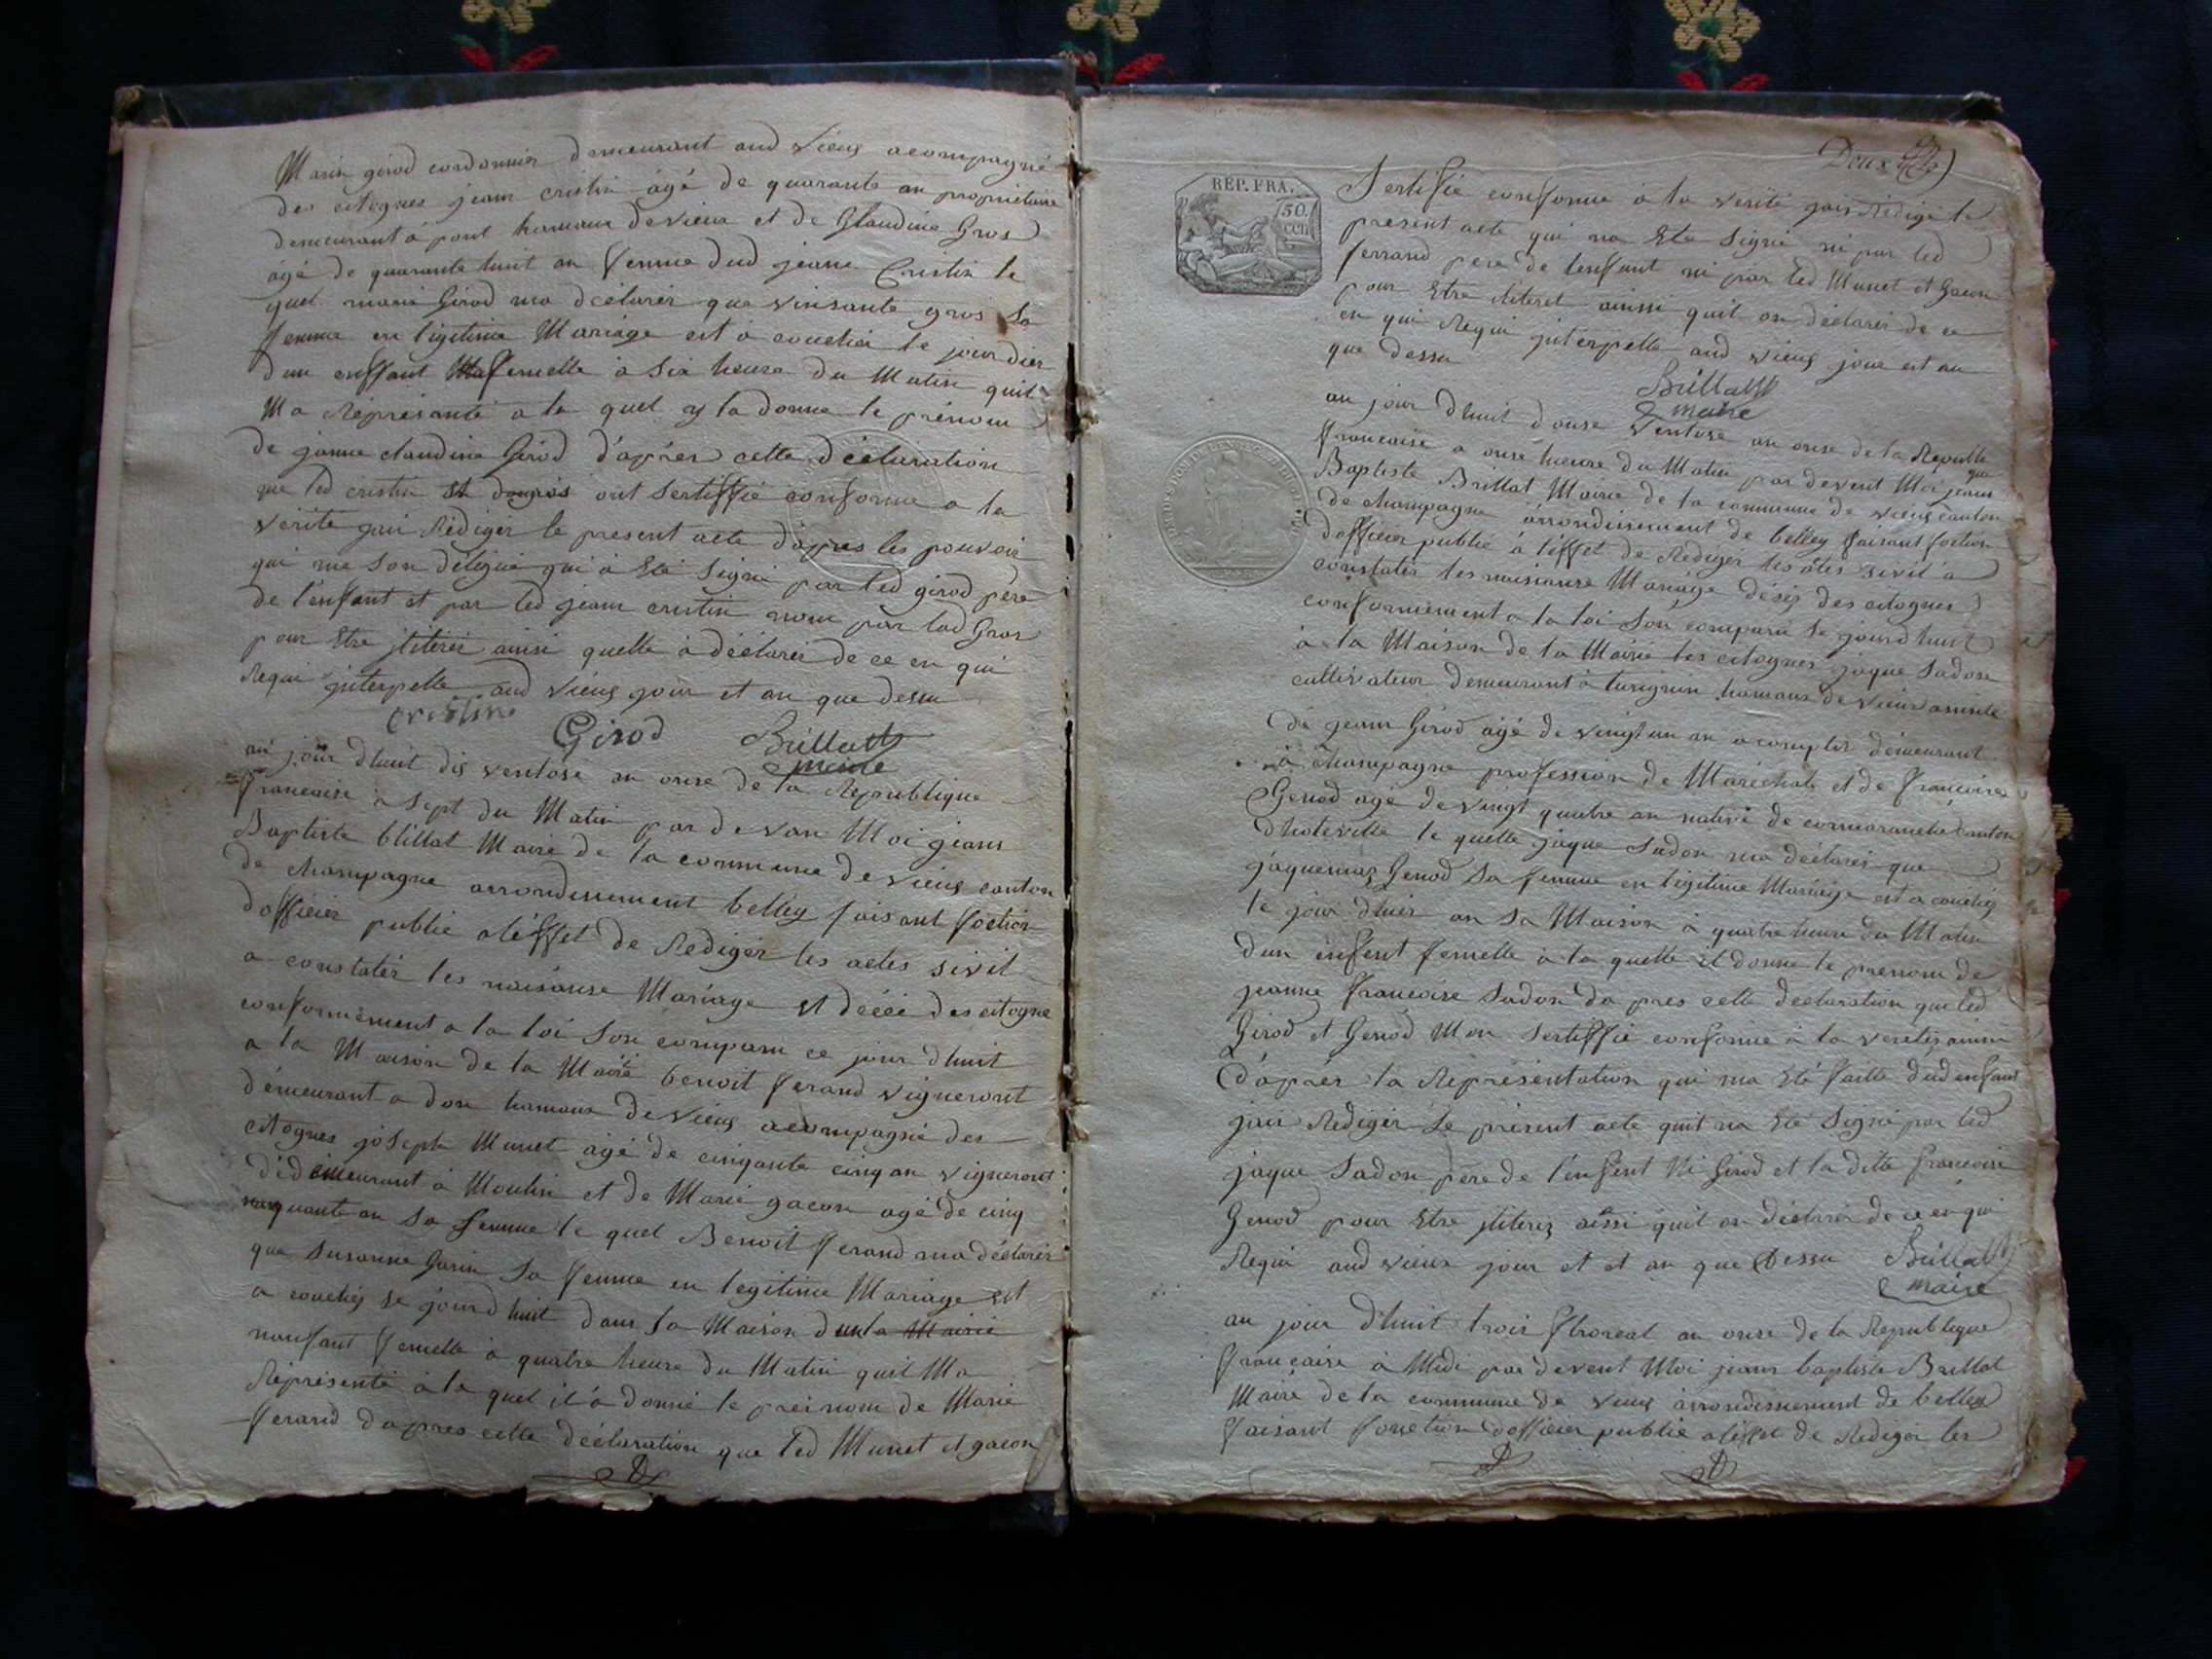 Marin girod cordonnier demeurant aud vieug acompagné
des citognes jeam cristin âgé de quarante an propriétaire
demeurant a pont hamaux de vieux et de Glaudine Gros
âgé de quarante huit an femme dud jeanne Cristin le
quel marin Girod ma déclarér que vinsante gros sa
femme en ligitime Mariage est a couchéz le jour dier
dun enffant femelle à six heure du Matin quil
Ma Répresanté a la quel y la donne le prénom
de janne claudine Girod d'aprés cette déclaration
que led cristin et dugros ont sertiffié conforme a la
vérité jai Rédiger le present acte d'apres les pouvoir
qui me son délégué qui a été signé par led girod pere
de l'enfant et par led jeam cristin nom par lad Gros
pour être jliteréz ainsi quelle à déclarér de ce en qui
Requi jnterpelle aud vieug jour et an que dessu
cristine Girod Brillat
maire
au jour dhuit dis ventose an onse de la République
francaise a sept du Matin par devan Moi jeam
Baptiste blillat Maire de la commune de vieug canton
de champagne arrondissement belley faisant foction
dofficier public a léffet de Rediger les actes sivil
a constatér les naisanse Mariage et décéé des citogne
conformément a la loi son comparu ce jour dhuit
a la Maison de la Mairié benoit ferand vigneront
démeurant a don hamaux de vieug acompagné des
citognes joseph Munet agé de cinquante cinq an vigneront
démeurant à Moulin et de Marie gacon agé de cinq
quante an sa femme le quel Benoit ferand ma déclarér
que susanne Garin sa femme en legitime Mariage est
a couchéz se jourd huit dans sa Maison dun la Mairie
nenfant femelle a quatre heure du Matin quil Ma
Représenté à la quel il a donné le preinom de Marie
ferand dapres cette déclaration que led Munet et gacon
Deux
REP. FRA.
50.
CEN
Sertifié conforme a la vérité jais Rédigé le
present acte qui na été signé ni par led
ferrand pere de lenfant ni par led Munet et Gacon
pour être jliteréz ainssi quil on déclarér de ce
en qui Requi jnterpelle aud vieug jour et an
que dessu
Brillat
maire
au jour dhuit douse ventose an onse de la Republique
francaise a onse heure du Matin par devent Moi jeam
Baptiste Brillat Maire de la commune de vieug canton
de champagne arrondissement de belley faisant foction
dofficier public à l'éffet de Rediger les actes sivil a
constatér les naisanse Mariage déséz des citognes
conformément a la loi son comparu se jourd huit
à la Maison de la Mairie les citognes jaque Sadon
cultivateur demeurant à turignin hamaux de vieux asisté
de jeam Girod agé de vingt un an acomplis démeurant
à champagne profession de Maréchale et de francoise
Genod agé de vingt quatre an native de cormaranche canton
dhoteville le quelle jaque Sadon ma déclarér que
jaquemaz Genod sa femme en ligitime Mariage est a couchéz
le jour dhier an sa Maison à quatre heure du Matin
dun enfent femelle à la quelle il donne le prenom de
jeanne francoise Sadon da pres cette declaration que led
Girod et Genod Mon sertiffié conforme à la veritéz
d'apréz la Représentation qui ma été faitte dud enfant
jais Rediger le présent acte quil na été signé par led
jaque Sadon pere de l'enfent Ni Girod et la ditte francoise
Genod pour être jliteréz ainsi quil on déclarér de ce en qui
Requi aud vieux jour et et an que Dessu Brillat
maire
au jour dhuit trois floreal an onse de la République
francaise à Midi par devent Moi jeam baptiste Brillat
Maire de la commune de vieug arrondissement de belley
faisant fonction dofficier public a léffet de Rediger les